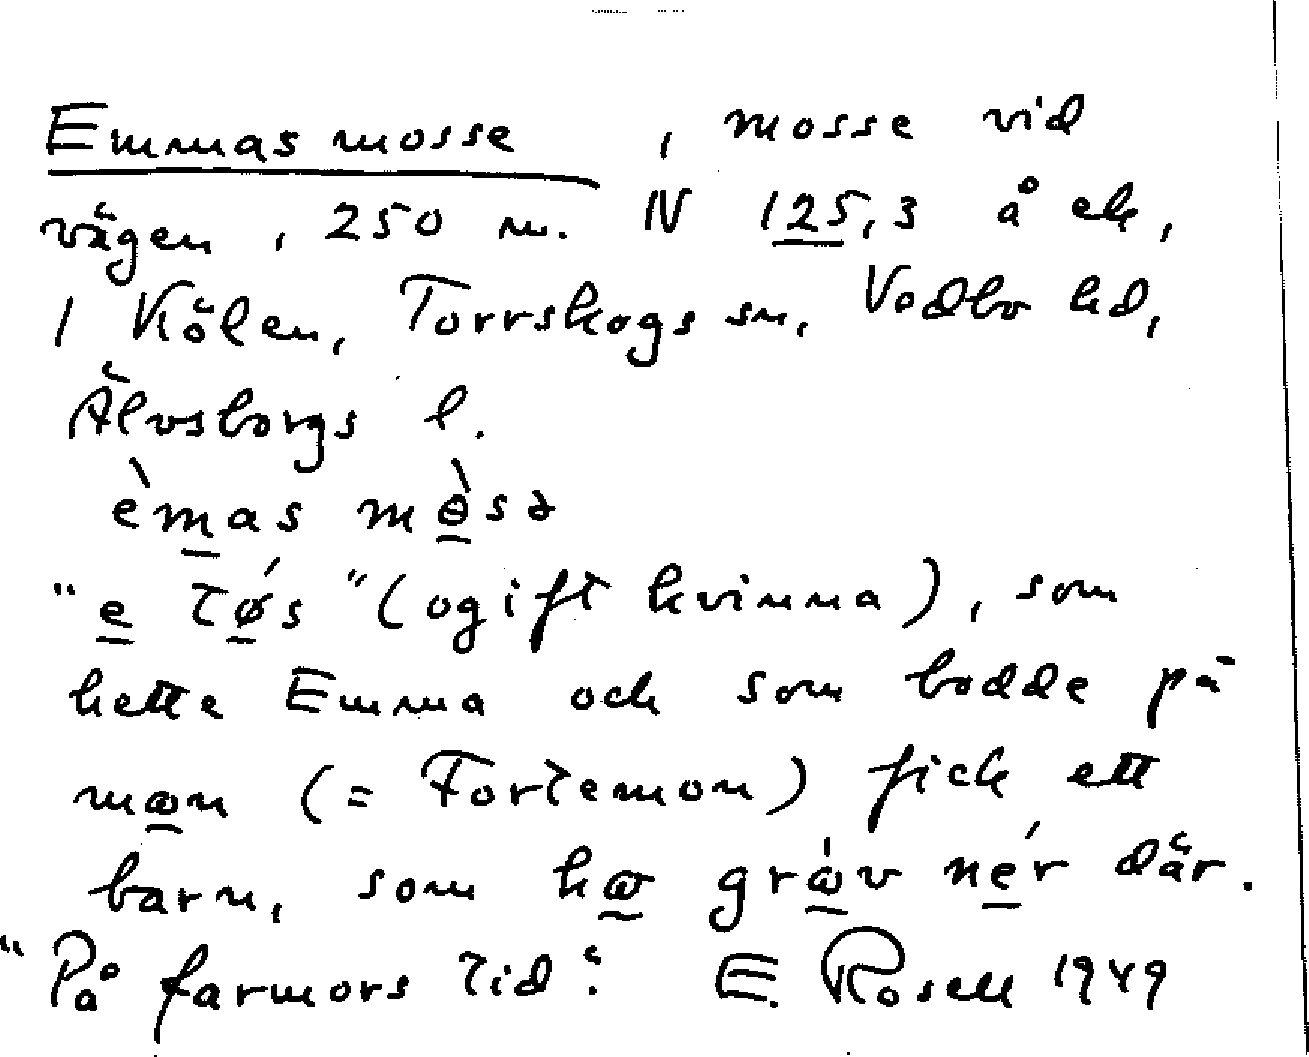 Emmas mosse, mosse vid
vägen, 250 m. N 125,3 å ek,
1 Kölen, Torrskogs sn, Vedbo hd,
Älvsborgs l.
èmas mɵ̀sə
"e tǿs" (ogift kvinna), som
hette Emma och som bodde på
mɷn (= Fortemon) fick ett
barn, som hɷ grɷ́v nér där.
"På farmors tid". E. Rosell 1949